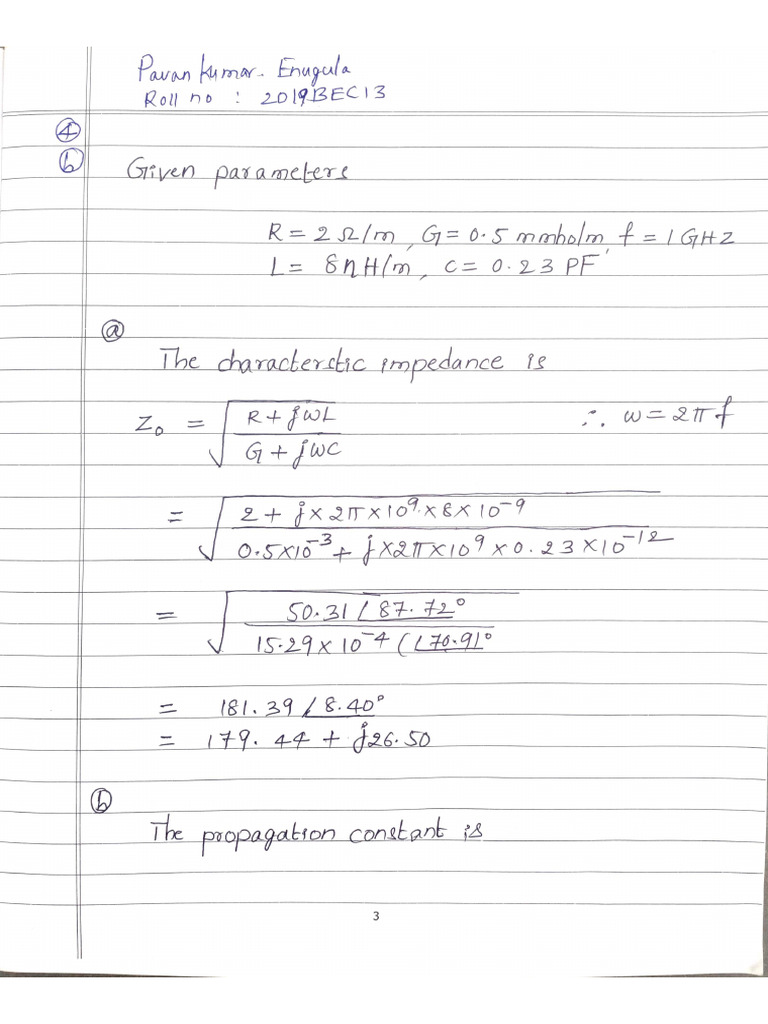 Pavan Kumar. Enugula
Roll no : 2019BEC13
④
ⓑ Given parameters
R = 2 Ω/m, G = 0.5 mmho/m, f = 1 GHZ
L = 8 ηH/m, c = 0.23 PF
ⓐ
The characterstic impedance is
Z₀ = √((R + jωL)/(G + jωC)) ∴ ω = 2π f
= √((2 + j×2π×10⁹×8×10⁻⁹)/(0.5×10⁻³ + j×2π×10⁹×0.23×10⁻¹²))
= √((50.31 ∠87.72°)/(15.29×10⁻⁴ (∠70.91°))
= 181.39 ∠8.40°
= 179.44 + j26.50
ⓑ
The propagation constant is
3